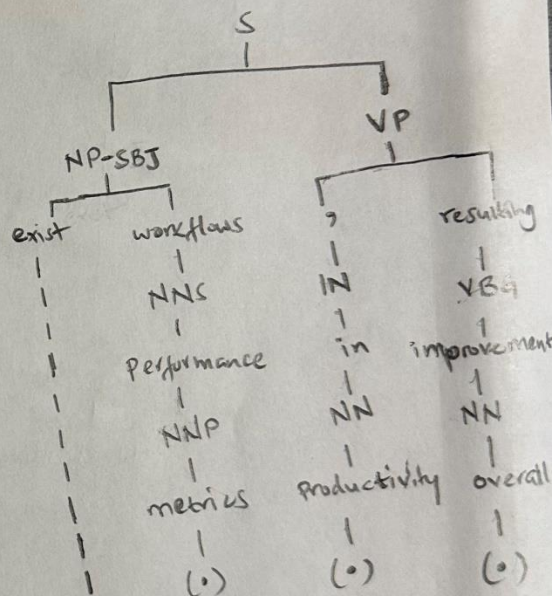 S
VP
NP-SBJ
exist workflows , resulting
NNS IN VBG
performance in improvement
NNP NN NN
metrics productivity overall
(.) (.) (.)